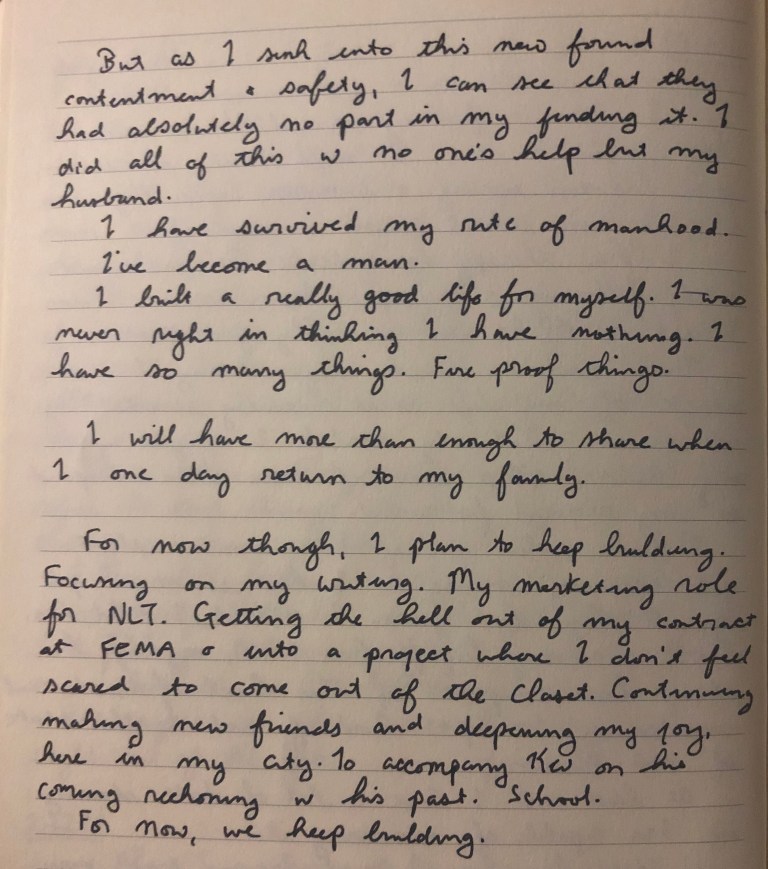 But as I sink into this new found
contentment & safety, I can see that they
had absolutely no part in my finding it. I
did all of this w no one's help but my
husband.
I have survived my rite of manhood.
I've become a man.
I built a really good life for myself. I was
never right in thinking I have nothing. I
have so many things. Fire proof things.
I will have more than enough to share when
I one day return to my family.
For now though, I plan to keep building.
Focusing on my writing. My marketing role
for NLT. Getting the hell out of my contract
at FEMA & into a project where I don't feel
scared to come out of the closet. Continuing
making new friends and deepening my joy,
here in my city. To accompany Kev on his
coming reckoning w his past. School.
For now, we keep building.